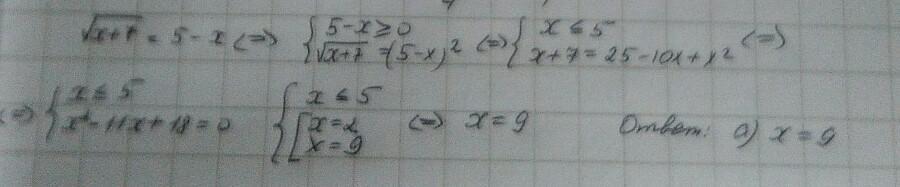 √x+7 = 5-x <=> { 5-x ≥ 0 ; √x+7 = (5-x)² <=> { x ≤ 5 ; x+7 = 25-10x+x² <=>
<=> { x ≤ 5 ; x²-11x+18=0 { x ≤ 5 ; [ x=2 ; x=9 <=> x=9 Ответ: а) x=9